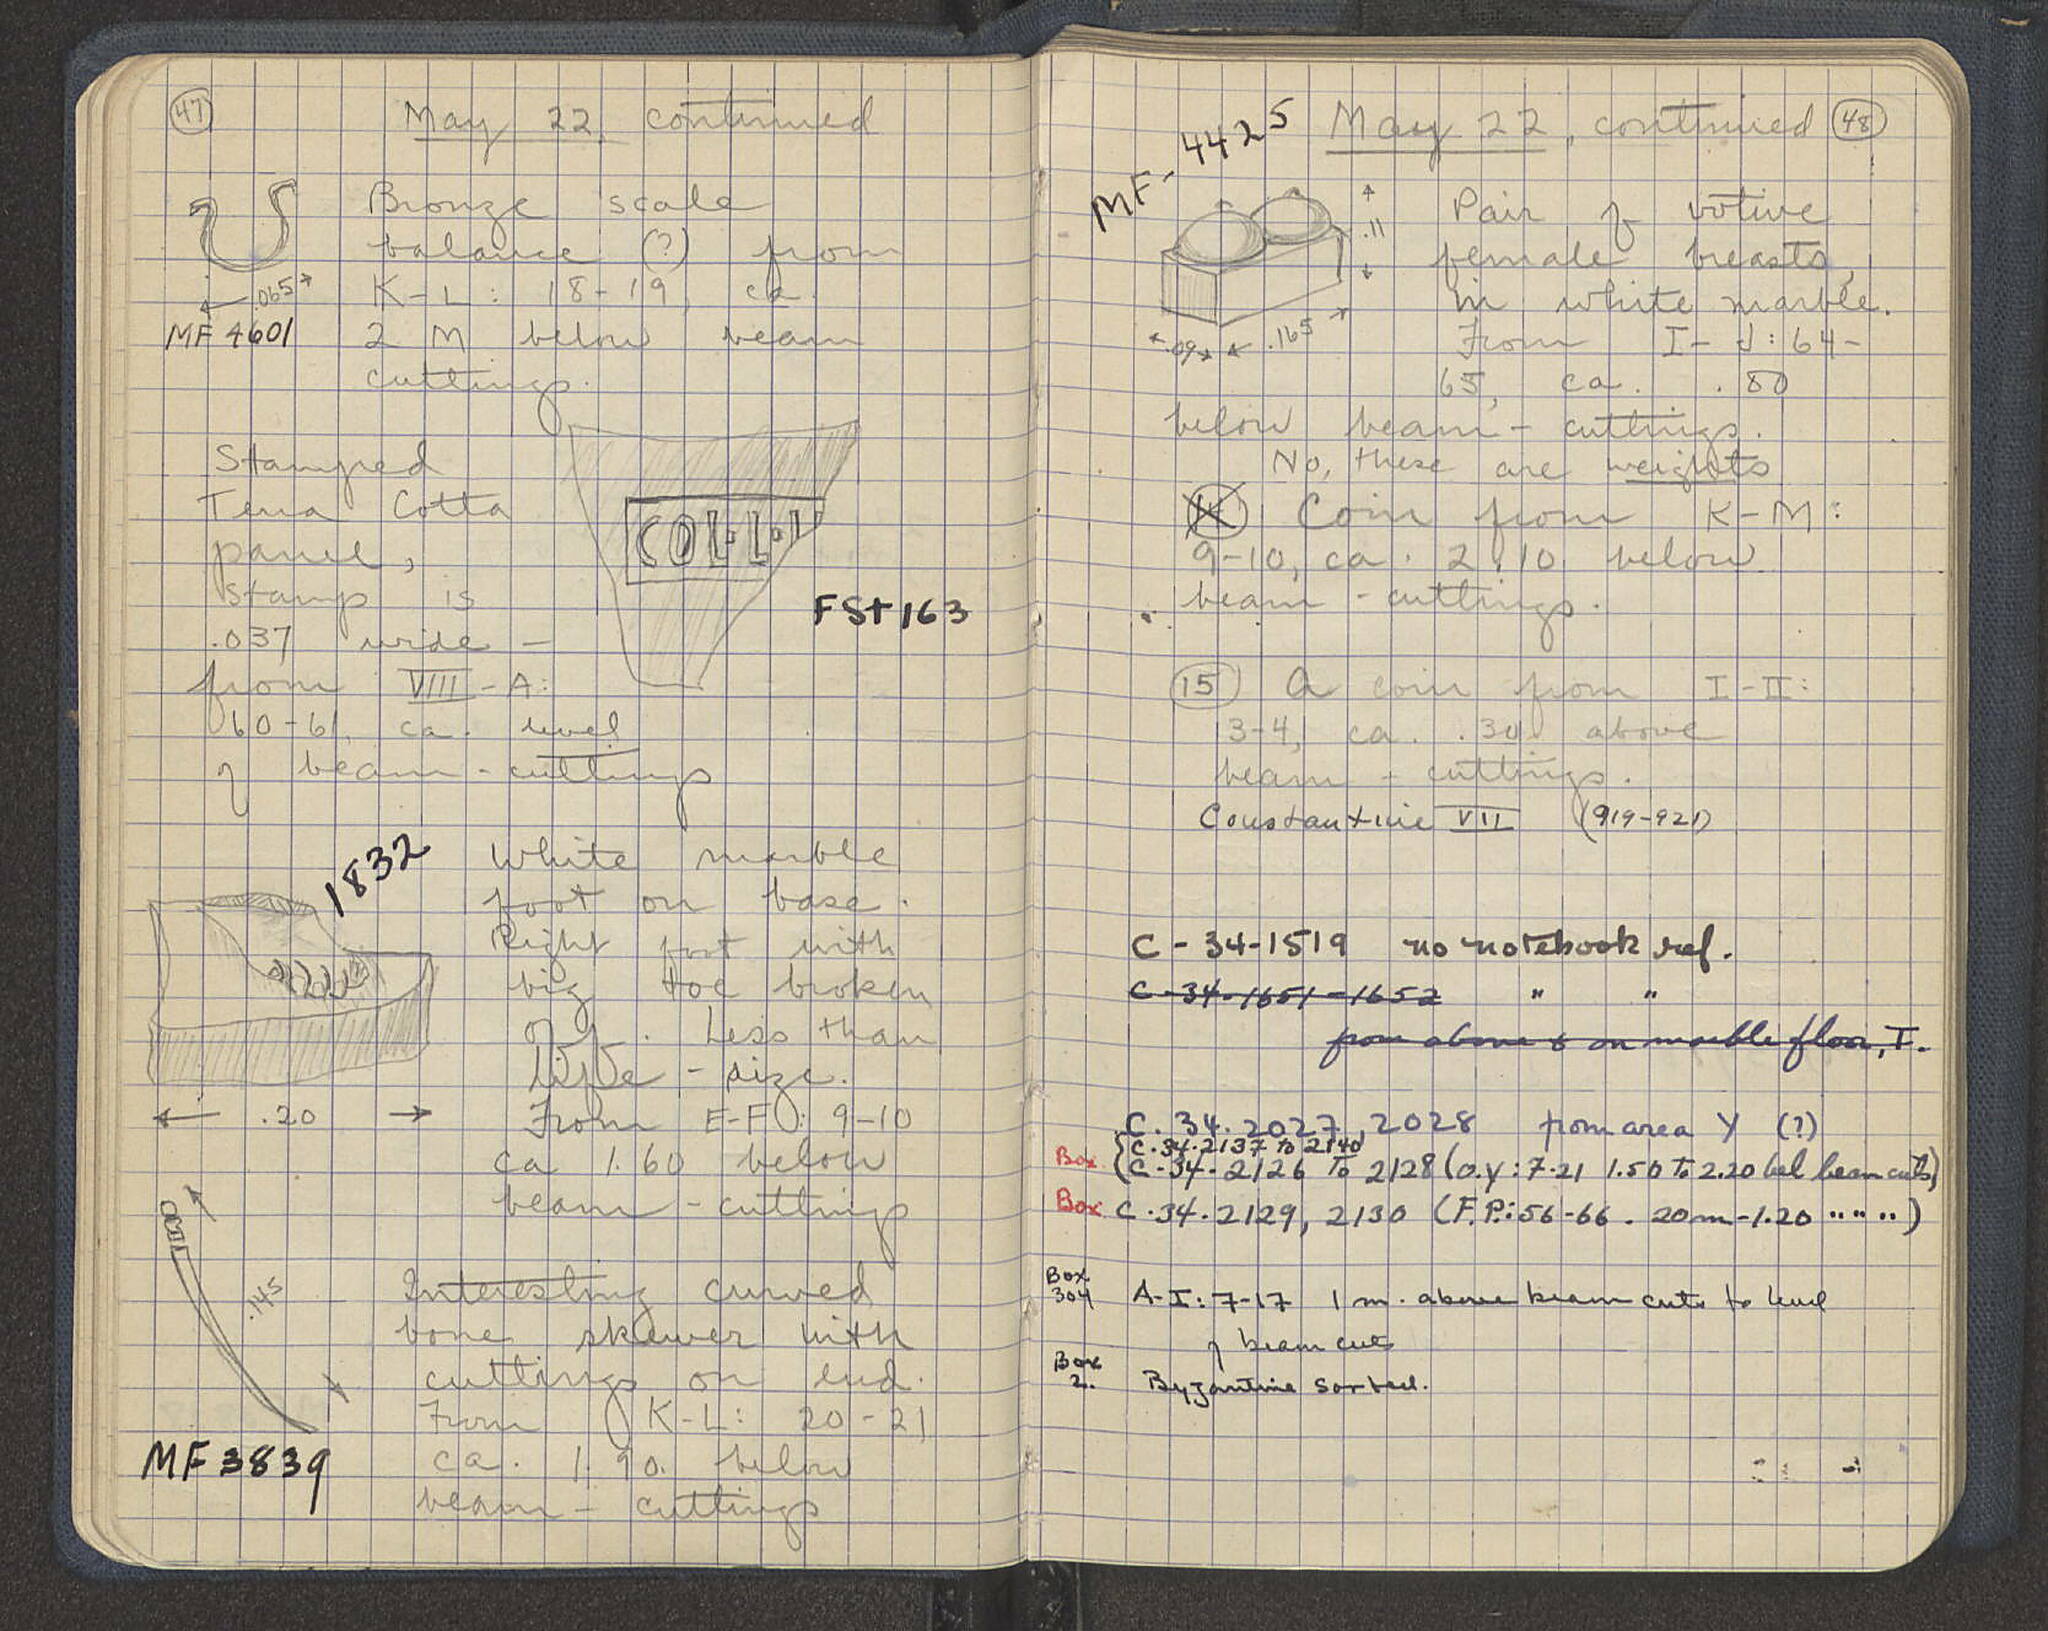 47
May 22, continued
Bronze scale
balance (?) from
K-L: 18-19, ca.
2 M below beam
cuttings.
.065
MF 4601
Stamped
Terra Cotta
panel,
stamp is
.037 wide -
from VIII-A:
60-61, ca. level
of beam-cuttings
COL·L·I
FSt 163
1832
White marble
foot on base.
Right foot with
big toe broken
off. Less than
life-size.
From E-F: 9-10
ca 1.60 below
beam-cuttings
.20
Interesting curved
bone skewer with
cuttings on end.
From K-L: 20-21
ca. 1.90. below
beam-cuttings
.145
MF 3839
MF-4425
May 22, continued
48
Pair of votive
female breasts,
in white marble.
From I-J: 64-
65, ca. .80
below beam-cuttings.
.11
.09
.165
No, these are weights
Coin from K-M:
9-10, ca. 2.10 below
beam-cuttings.
15 A coin from I-II:
3-4, ca. .30 above
beam-cuttings.
Constantine VII (919-921)
C-34-1519 no notebook ref.
C-34-1651-1652 " "
from above & on marble floor, I.
C.34.2027, 2028 from area Y (?)
C.34.2137 to 2140
Box C-34-2126 To 2128 (O.Y:7-21 1.50 To 2.20 bel beam cuts)
Box C.34.2129, 2130 (F.P.:56-66. 20m-1.20 " " ")
Box
304 A-I:7-17 1 m. above beam cuts to level
of beam cuts
Box
2. Byzantine sorted.